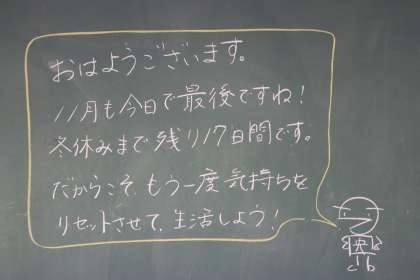 おはようございます。
11月も今日で最後ですね!
冬休みまで残り17日間です。
だからこそ、もう一度気持ちを
リセットさせて、生活しよう!